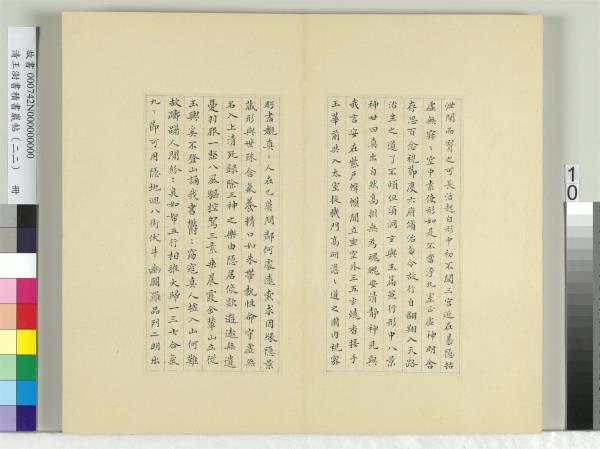 泄閉而寶之可長活起自形中初不闊三宮近在易隱括
虛無寂〻空中素使形如是不當汙九室正虛神明舍
存思百念視節度六府脩治勿令故行自翱翔入天路
治生之道了不煩但脩洞玄與玉篇兼行形中八景
神廿四真出自然高拱無為魂魄安清靜神見與
我言安在紫戶幃幙間立坐室外三五玄燒香接手
玉華前共入太室璇璣門高研恬淡道之園內視密
盼盡覩真〻人在己莫問鄰何處遠索求因緣隱景
藏形與世殊含氣養精口如朱帶執性命守虛無
名入上清死録除三神之樂由隱居倐歘遊遨無遺
憂羽服一整八風驅控駕三素乘晨霞金輦正立從
玉輿奚不登山誦我書欝〻窈窈真人墟入山何難
故躊躇人間紛〻臭如帤五行相推反歸一三五合氣
九〻節可用隱地迴八術伏牛幽闕羅品列三明出
故書 000742N000000000
清王澍書積書巖帖(二二) 冊
10